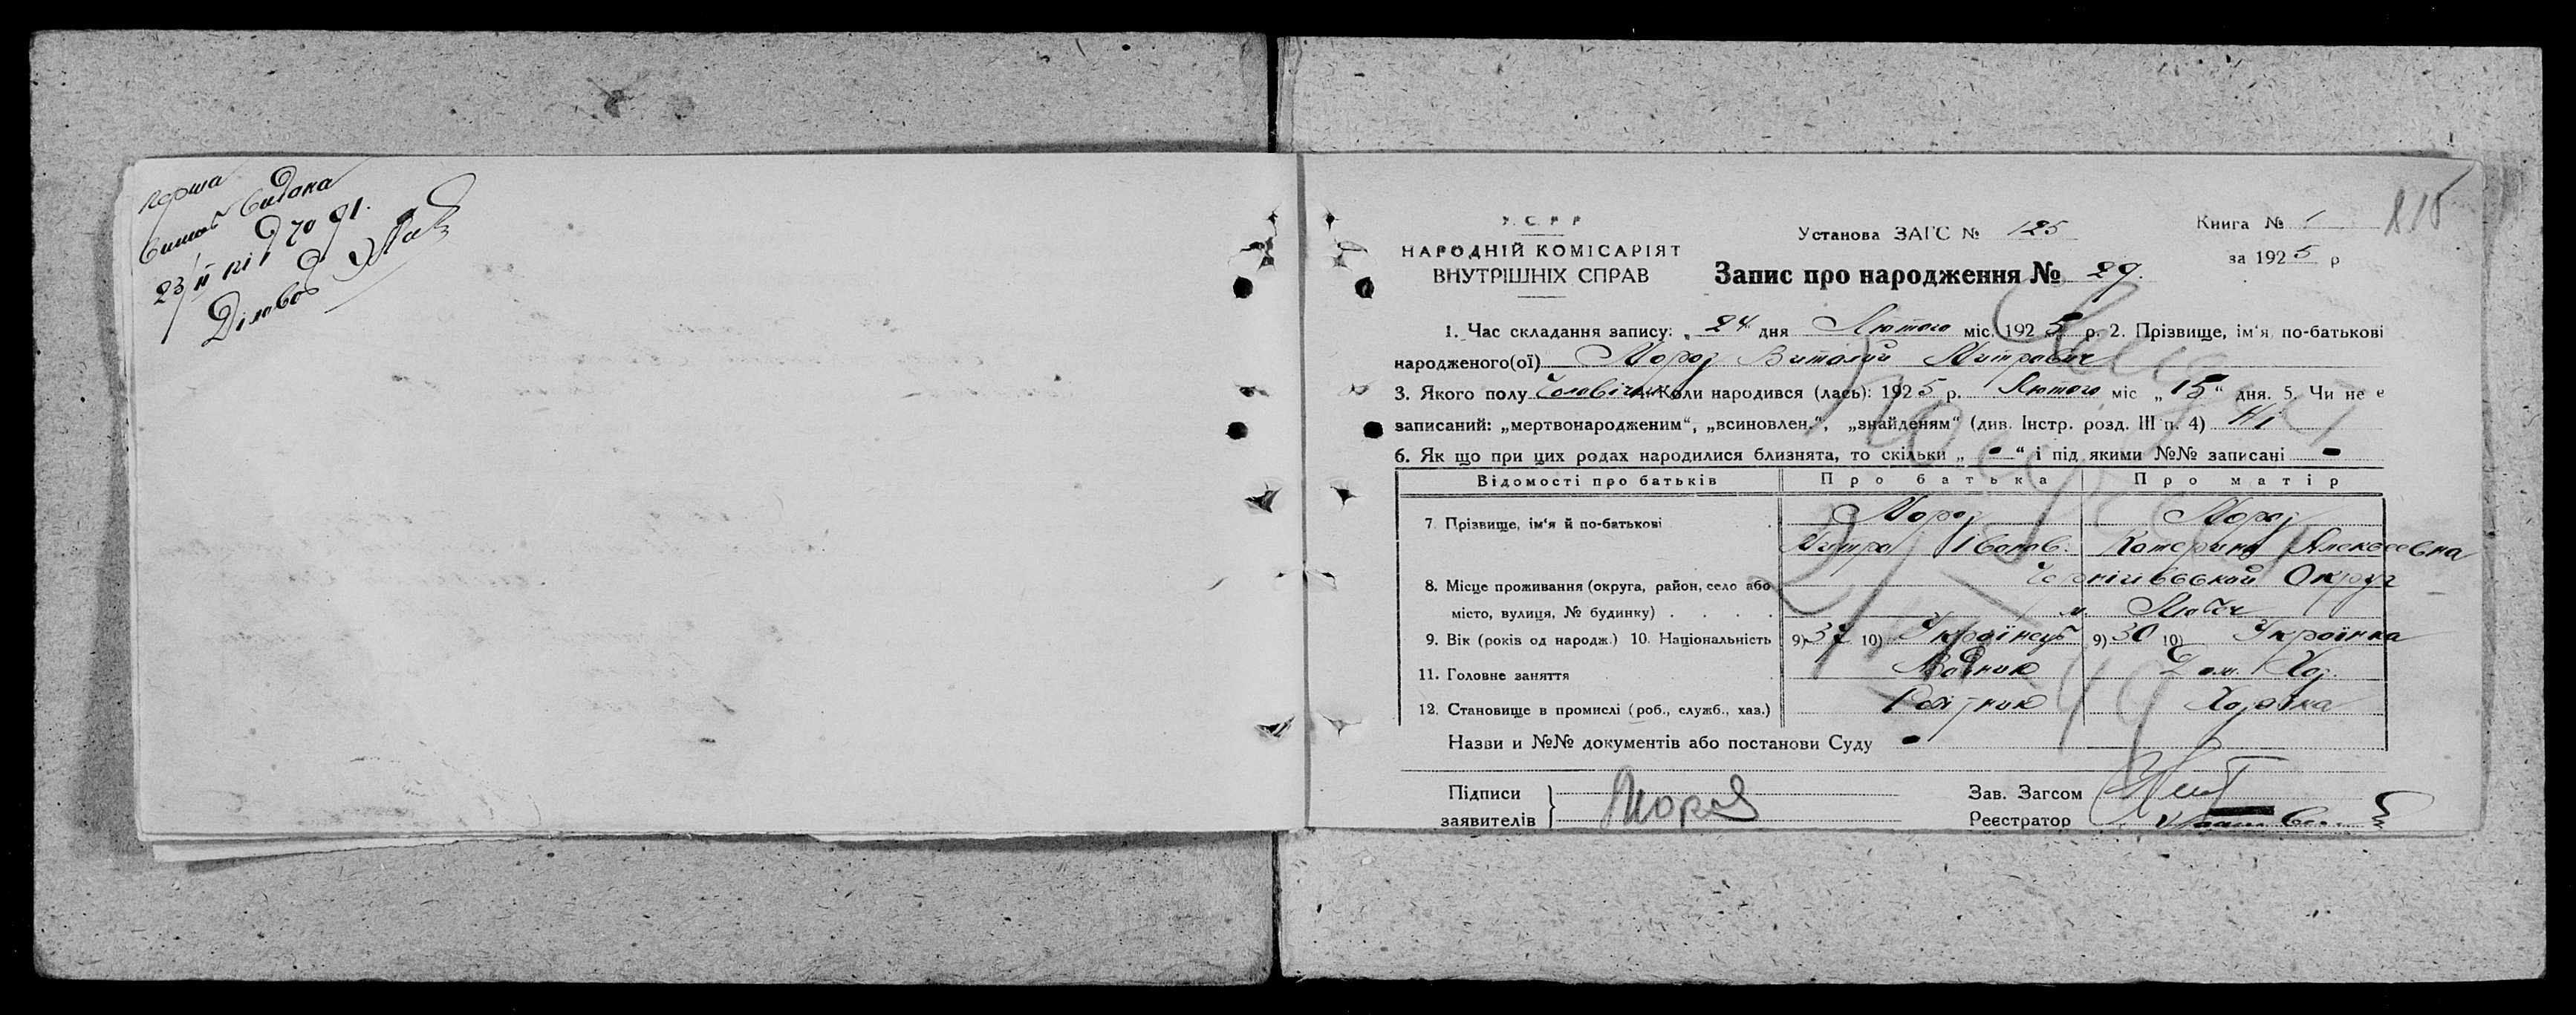 перша
видана
23/II
Діловод
У.С.Р.Р
НАРОДНІЙ КОМІСАРІЯТ
ВНУТРІШНІХ СПРАВ
Установа ЗАГС № 125
Книга № 1
815
за 1925 р
Запис про народження № 29.
1. Час складання запису: „ 24 дня Лютого міс. 1925 р. 2. Прізвище, ім'я, по-батькові
народженого(ої) Мороз Виталий Митрович
3. Якого полу Чоловіч 4. Коли народився (лась): 1925 р. Лютого міс „15“ дня. 5. Чи не є
записаний: „мертвонародженим“, „всиновлен.“, „знайденям“ (див. Інстр. розд. III п. 4) Ні
6. Як що при цих родах народилися близнята, то скільки „ - “ і під якими №№ записані -
Відомості про батьків Про батька Про матір
7. Прізвище, ім'я й по-батькові Мороз Мороз
Митро Іванов. Катерина Алексеевна
8. Місце проживання (округа, район, село або Чернігівської Округ
місто, вулиця, № будинку) . . . . м. Любеч
9. Вік (років од народж.) 10. Національність 9) 37 10) Українець 9) 30 10) Українка
11. Головне заняття Водник Дом. Хоз.
12. Становище в промислі (роб., служб., хаз.) Робітник Хозяйка
Назви и №№ документів або постанови Суду -
Підписи
заявителів Мороз
Зав. Загсом
Реєстратор